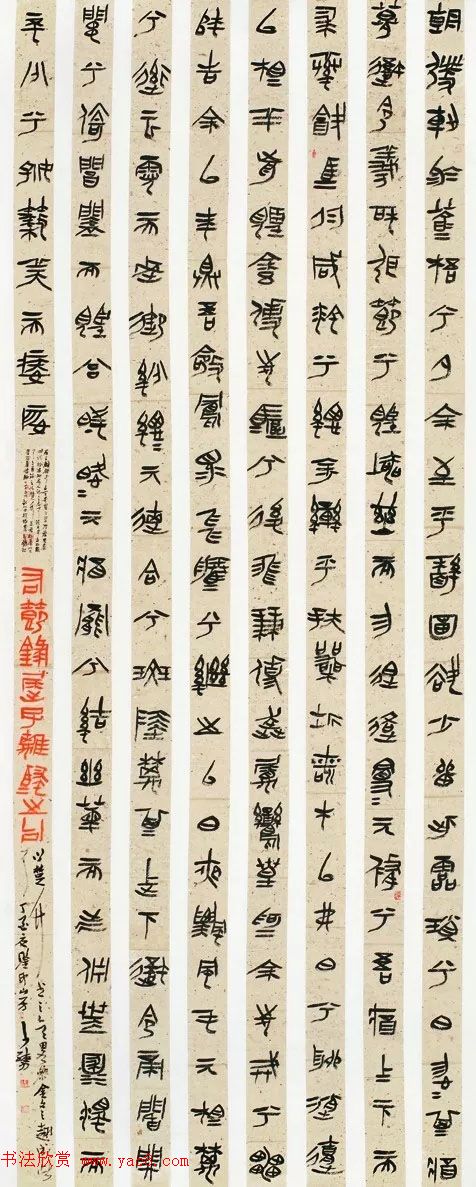 朝發軔於蒼梧兮夕余至乎縣圃欲少留此靈瑣兮日忽=其將
暮吾令羲和弭節兮望崦嵫而勿迫路曼=其修兮吾將上下而
求索飲馬於咸池兮總余轡乎扶桑折若木以拂日兮聊逍遙
以相羊前望舒使先驅兮後飛廉使奔屬鸞皇為余先戒兮雷
師告余以未具吾令鳳鳥飛騰兮繼之以日夜飄風屯其相離
兮帥雲霓而來御紛總=其離合兮斑陸離其上下吾令帝閽開
關兮倚閶闔而望予時曖=其將罷兮結幽蘭而延佇世溷濁而
不分兮好蔽美而嫉妒
右節錄屈子離騷之句
以楚
书法欣赏 www.yac8.com